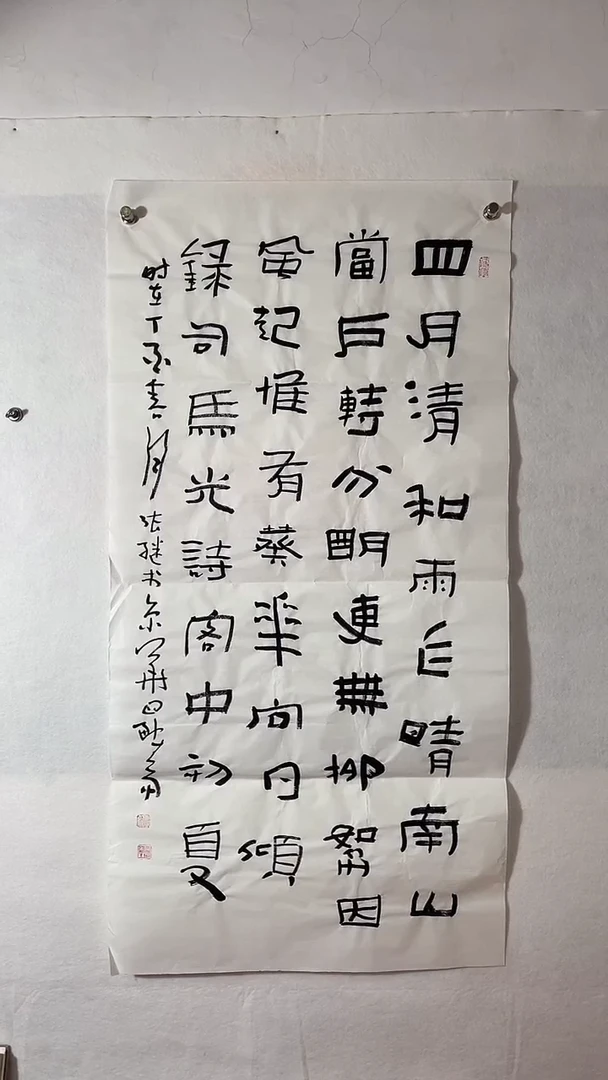 四月清和雨乍晴南山
當戶轉分明更無柳絮因
風起惟有葵華向日傾
録司馬光詩客中初夏
时在丁酉春月法继书京